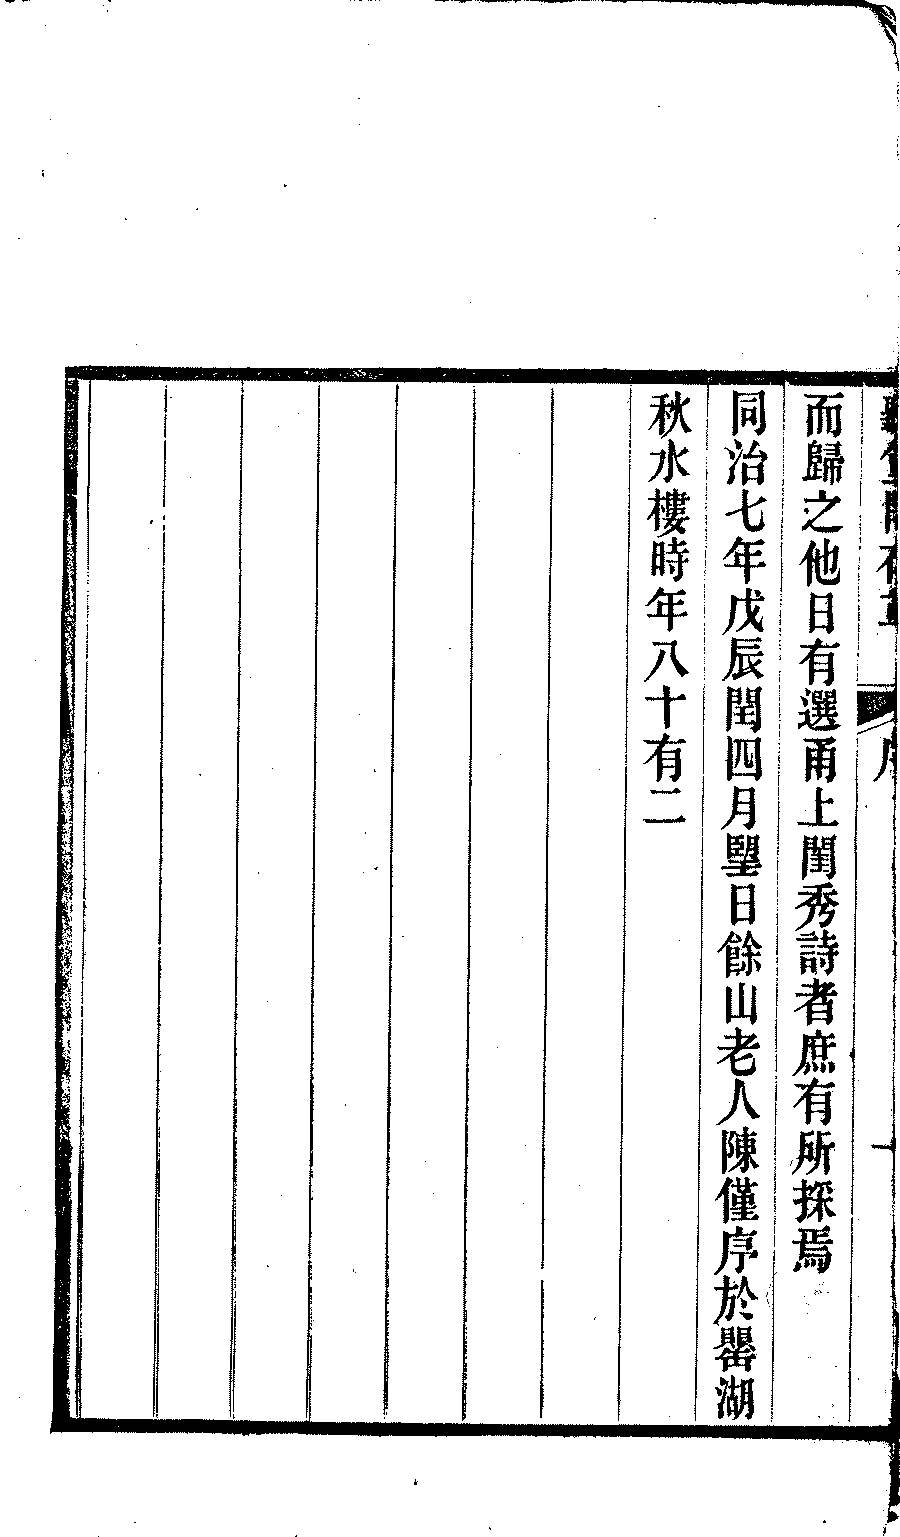 而歸之他日有選甬上閨秀詩者庶有所採焉
同治七年戊辰閏四月朢日餘山老人陳僅序於罌湖
秋水樓時年八十有二